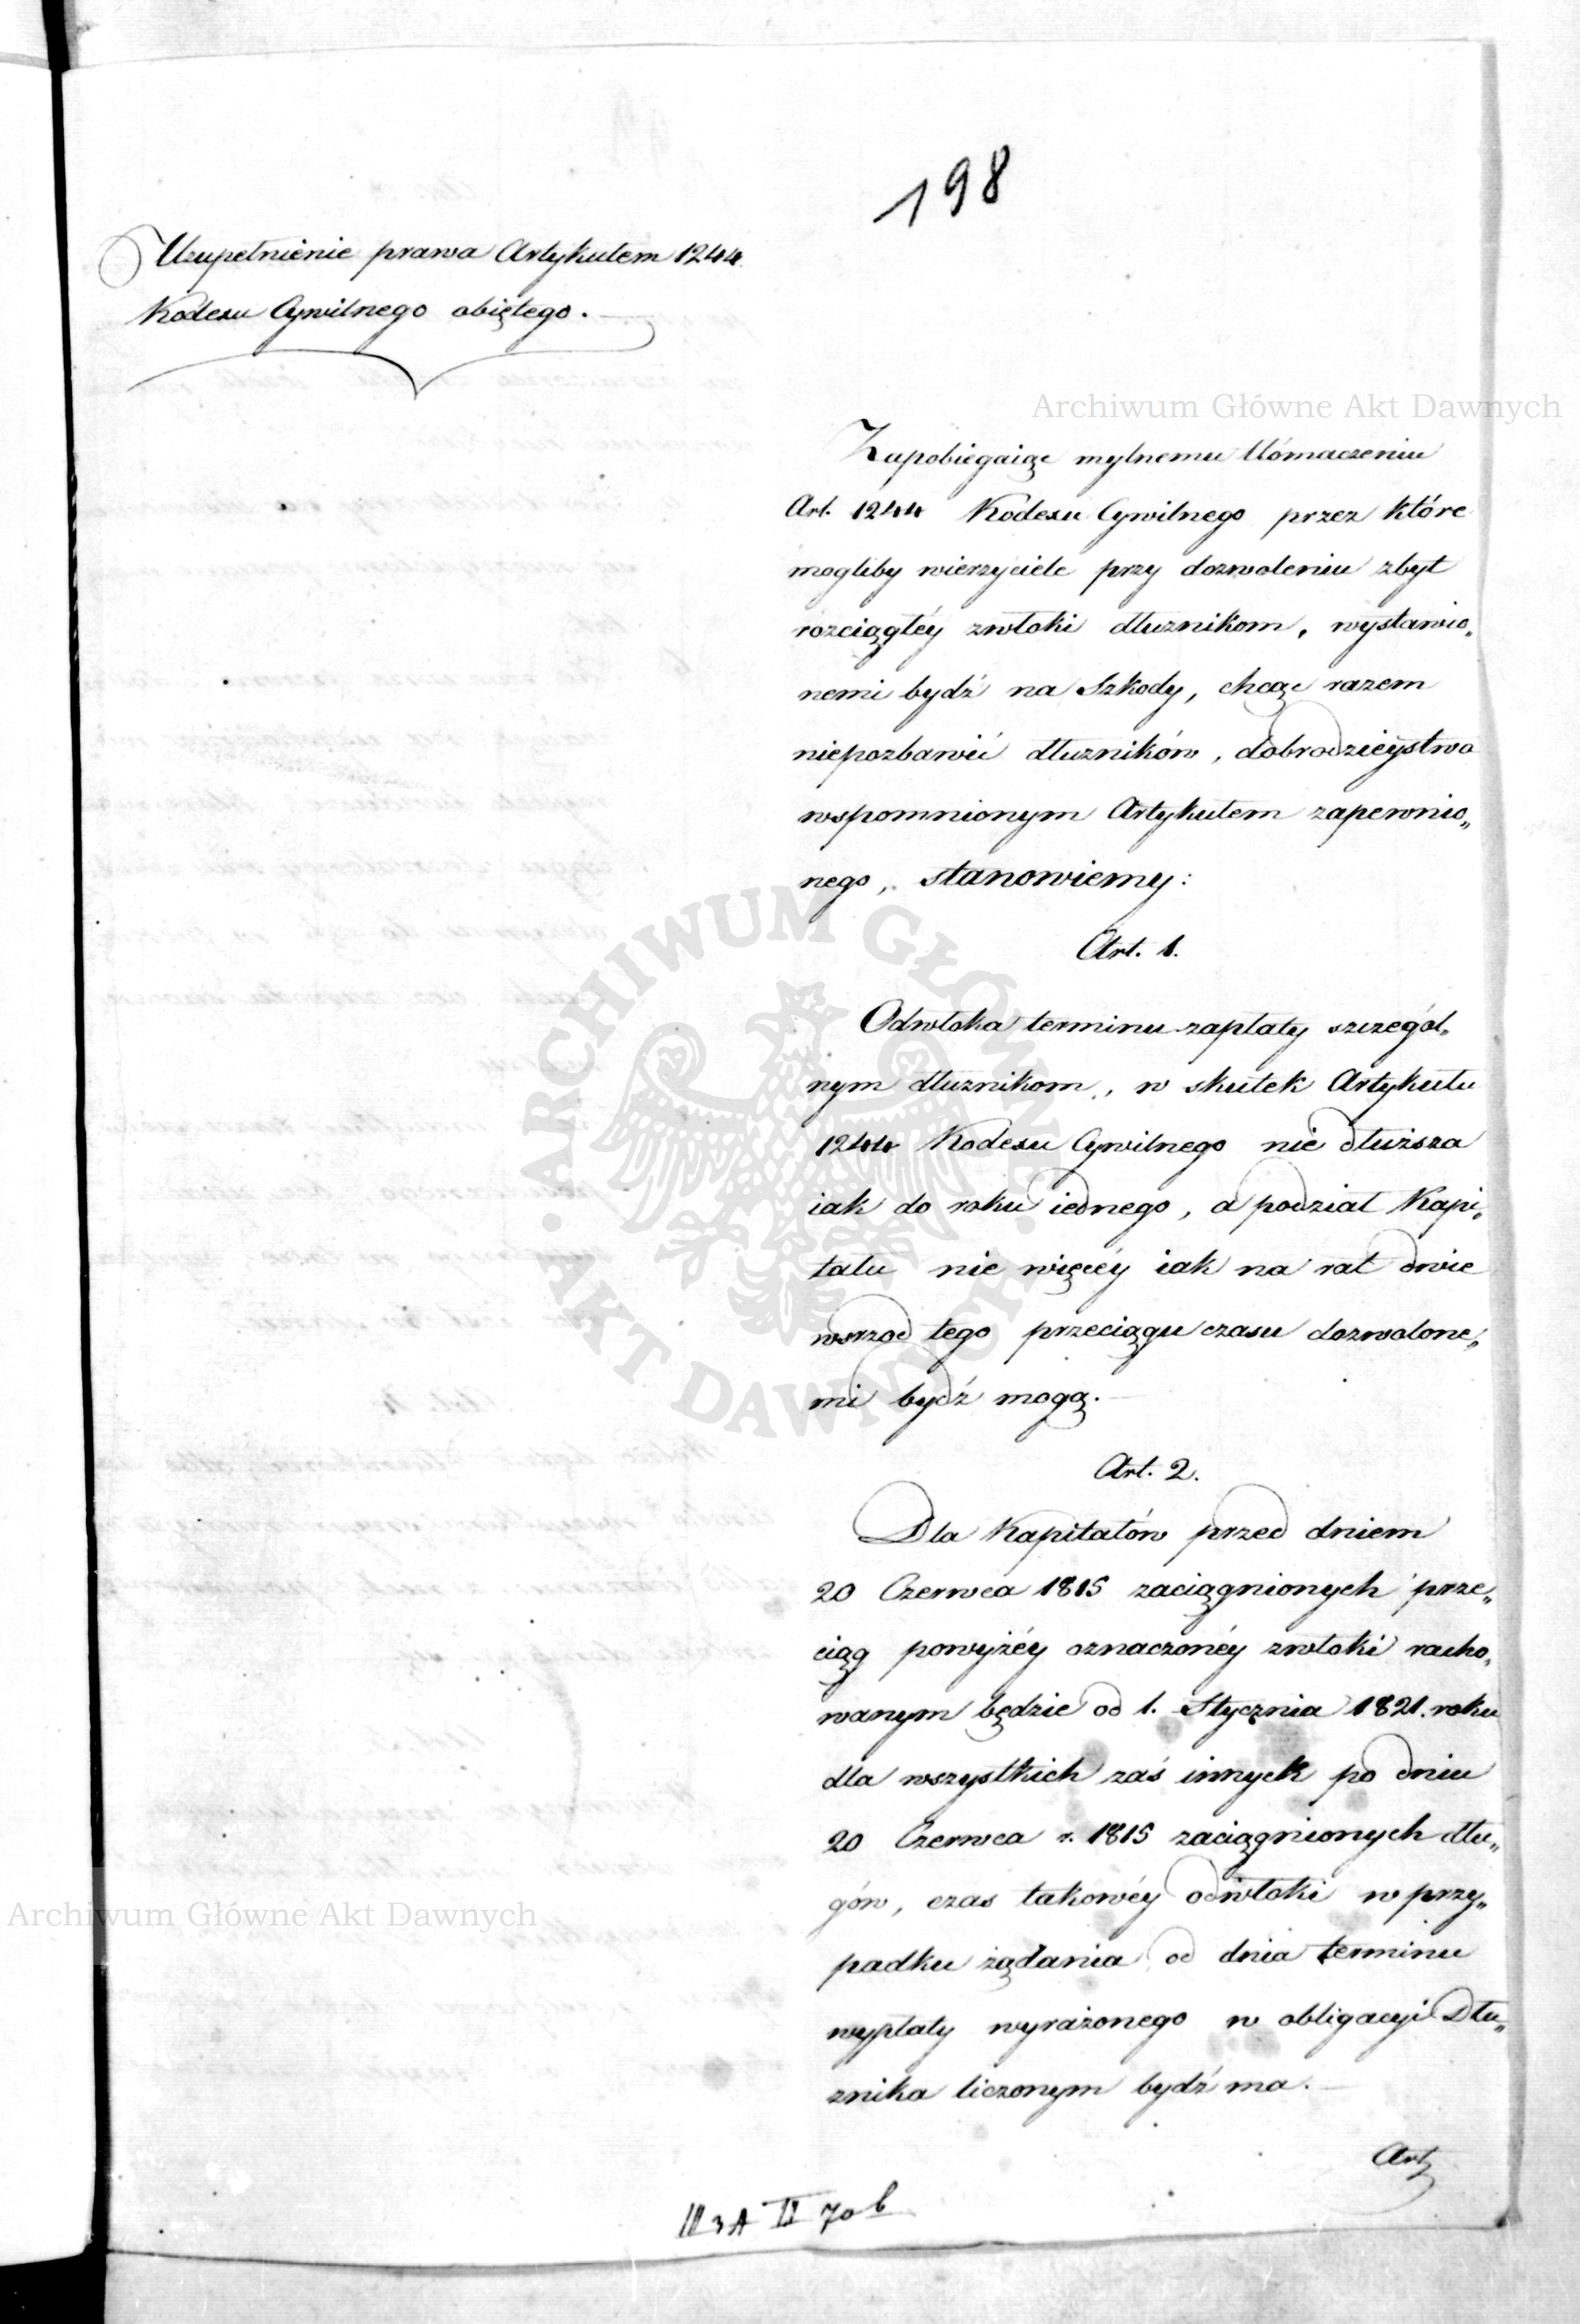 198
Uzupełnienie prawa Artykułem 1244
Kodexu Cywilnego obiętego.
Archiwum Główne Akt Dawnych
Zapobiegaiąc mylnemu tłómaczeniu
Art. 1244 Kodexu Cywilnego przez które
mogliby wierzyciele przy dozwoleniu zbyt
rozciągłéy zwłoki dłuznikom, wystawio„
nemi bydź na Szkody, chcąc razem
niepozbawić dłuzników, dobrodzieystwa
wspomnionym Artykułem zapewnio„
nego, stanowiemy:
Art. 1.
Odwłoka terminu zapłaty szczegól„
nym dłuznikom, w skutek Artykułu
1244 Kodexu Cywilnego nie dłuższa
iak do roku iednego, a podział Kapi„
tału nie więcéy iak na rat dwie
wsrzod tego przeciągu czasu dozwolone„
mi bydź mogą.
Art. 2.
Dla Kapitałów przed dniem
20 Czerwca 1815 zaciągnionych prze„
ciąg powyżéy oznaczonéy zwłoki racho„
wanym będzie od 1. Stycznia 1821. roku
dla wszystkich zaś innych po dniu
20 Czerwca r. 1815 zaciągnionych dłu„
gów, czas takowéy odwłoki w przy„
padku żądania od dnia terminu
wypłaty wyrażonego w obligacyi Dłu„
znika liczonym bydź ma.
Art
III 3A II 70b
ARCHIWUM GŁÓWNE AKT DAWNYCH
Archiwum Główne Akt Dawnych